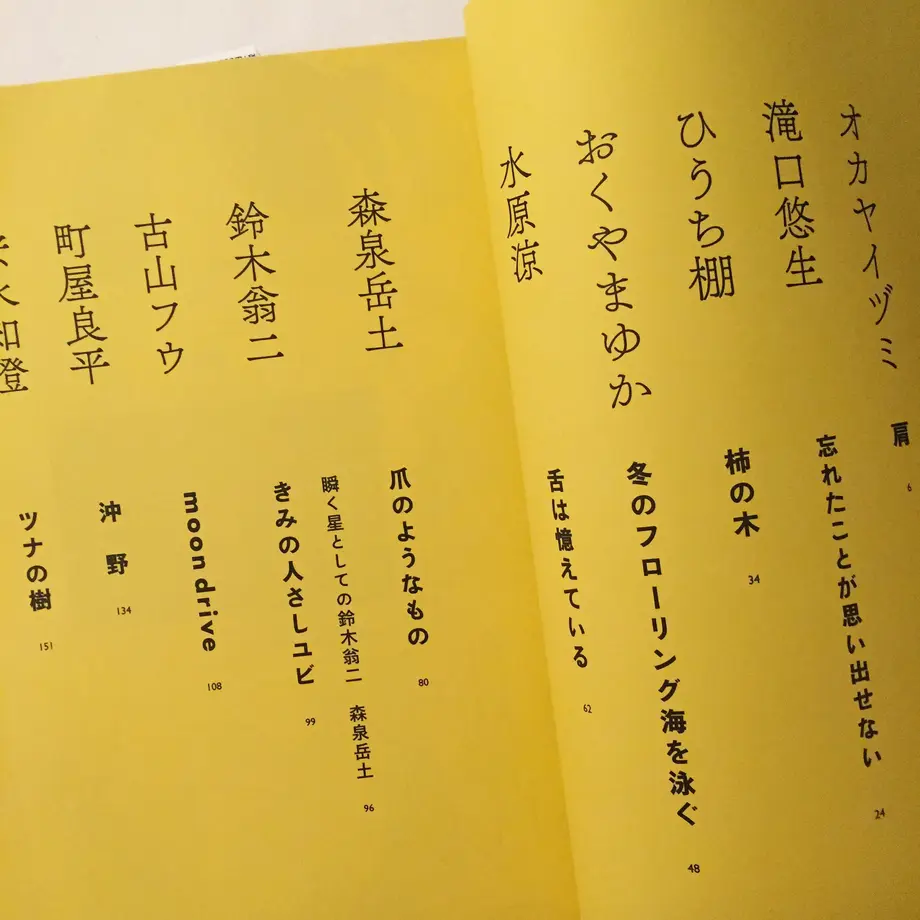 オカヤイヅミ
肩
6
滝口悠生
忘れたことが思い出せない
24
ひうち棚
柿の木
34
おくやまゆか
冬のフローリング海を泳ぐ
48
水原涼
舌は憶えている
62
森泉岳土
爪のようなもの
80
瞬く星としての鈴木翁二 森泉岳土
96
鈴木翁二
きみの人さしユビ
99
古山フウ
moon drive
108
町屋良平
沖野
134
ツナの樹
151